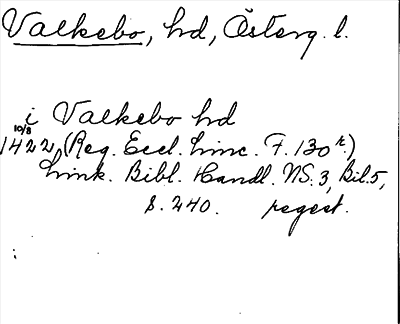 Valkebo, hd, Österg. l.
i Valkebo hd
10/8
1422, (Reg. Eccl. Linc. F. 130 r.)
Link. Bibl. Handl. NS. 3, Bil. 5,
s. 240. regest.